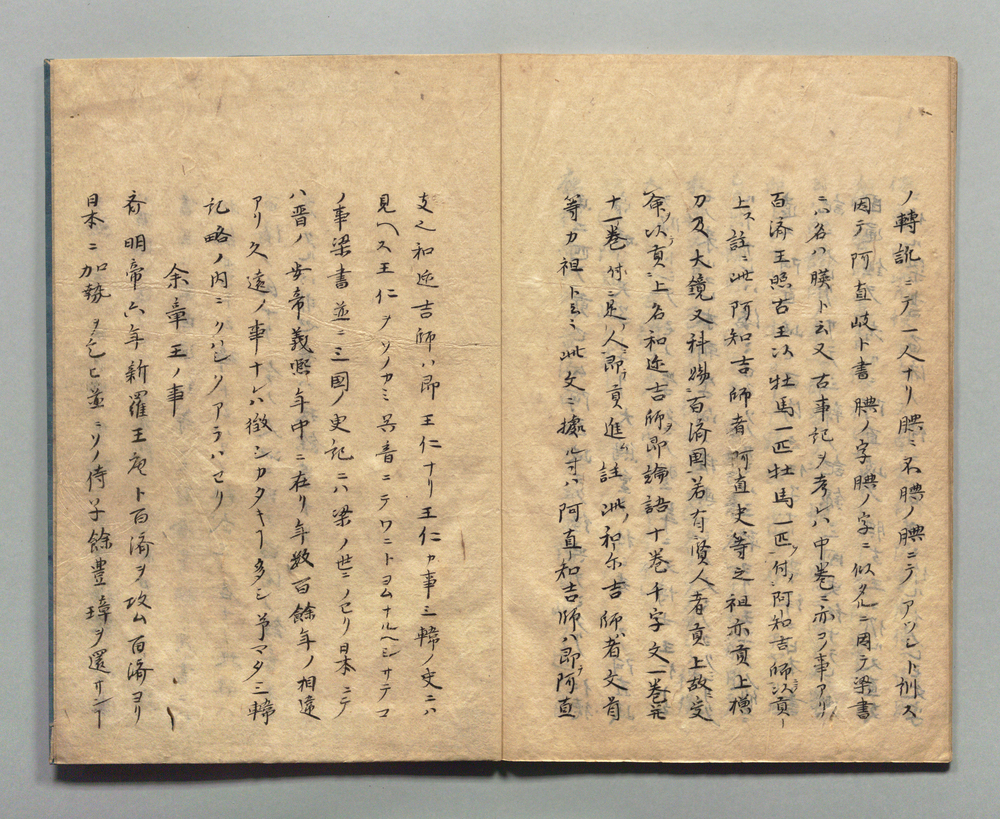 ノ轉訛ニテ一人ナリ腆ミ不腆ノ腆ニテアツシト訓ス
因テ阿直岐ト書腆ノ字腆ノ字ニ似タルニ因テ梁書
ニハ名ハ腆ト云又古事記ヲ考レハ中巻ニ亦コノ事アリ
百済王照古王以牡馬一匹牡馬一匹付阿知吉師以貢
上ス註ニ此阿知吉師者阿直史等之祖亦貢上横
刀及大鏡又科賜百済国若有賢人者貢上故受
命以貢上名和迩吉師即論語十巻千字文一巻并
十一巻付是人即貢進註此和尓吉師者文首
等カ祖ト云ミ此文ニ據レハ阿直知吉師ハ即阿直
支之和迩吉師ハ即王仁ナリ王仁カ事三韓ノ史ニハ
見ヘス王仁ヲソノカミ呉音ニテワニトヨムナルヘシサテコ
ノ事梁書並ニ三国ノ史記ニハ梁ノ世ニノセリ日本ニテ
ハ晋ノ安帝義熙年中ニ在リ年数百餘年ノ相違
アリ久遠ノ事ナレハ徴シカタキ多シ今マタ三韓
記略ノ内ニクハシクアラハセリ
余章王ノ事
斉明帝六年新羅王ト百済ヲ攻ム百済ヨリ
日本ニ加勢ヲ乞ヒ並ニソノ侍子餘豊璋ヲ還サン